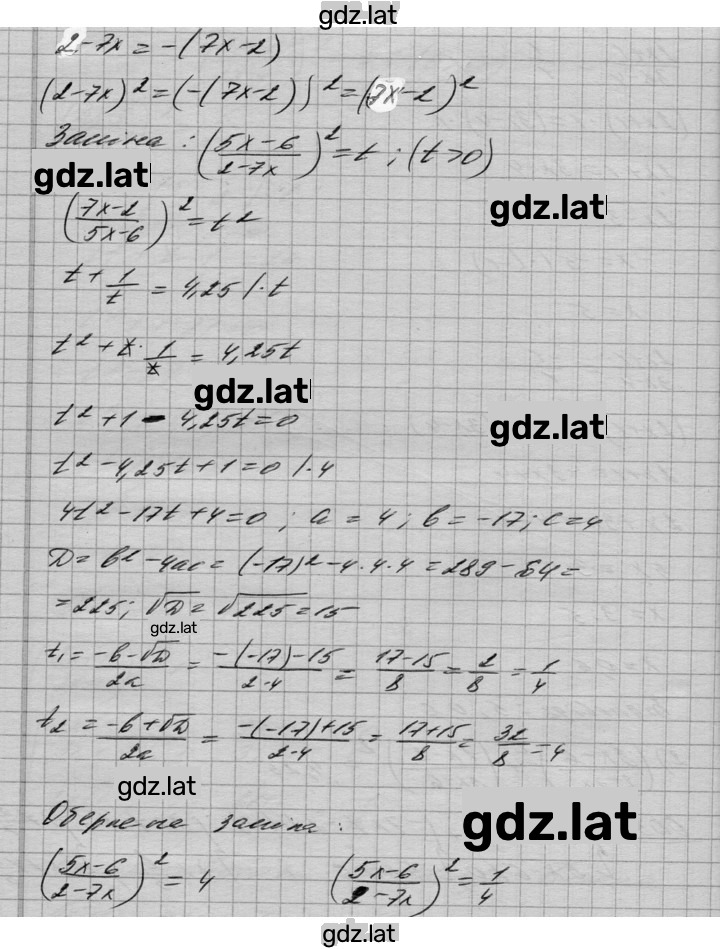 gdz.lat
2-7x = -(7x-2)
(2-7x)² = (-(7x-2))² = (7x-2)²
Заміна : ((5x-6)/(2-7x))² = t ; (t>0)
gdz.lat
gdz.lat
((7x-2)/(5x-6))² = t²
t + 1/t = 4,25 /·t
t² + t · 1/t = 4,25t
gdz.lat
t² + 1 - 4,25t = 0
gdz.lat
t² - 4,25t + 1 = 0 /·4
4t² - 17t + 4 = 0 ; a = 4 ; b = -17 ; c = 4
D = b² - 4ac = (-17)² - 4·4·4 = 289 - 64 =
= 225; √D = √225 = 15
gdz.lat
t₁ = (-b-√D)/2a = (-(-17)-15)/(2·4) = (17-15)/8 = 2/8 = 1/4
t₂ = (-b+√D)/2a = (-(-17)+15)/(2·4) = (17+15)/8 = 32/8 = 4
gdz.lat
Обернена заміна :
gdz.lat
((5x-6)/(2-7x))² = 4 ((5x-6)/(2-7x))² = 1/4
gdz.lat